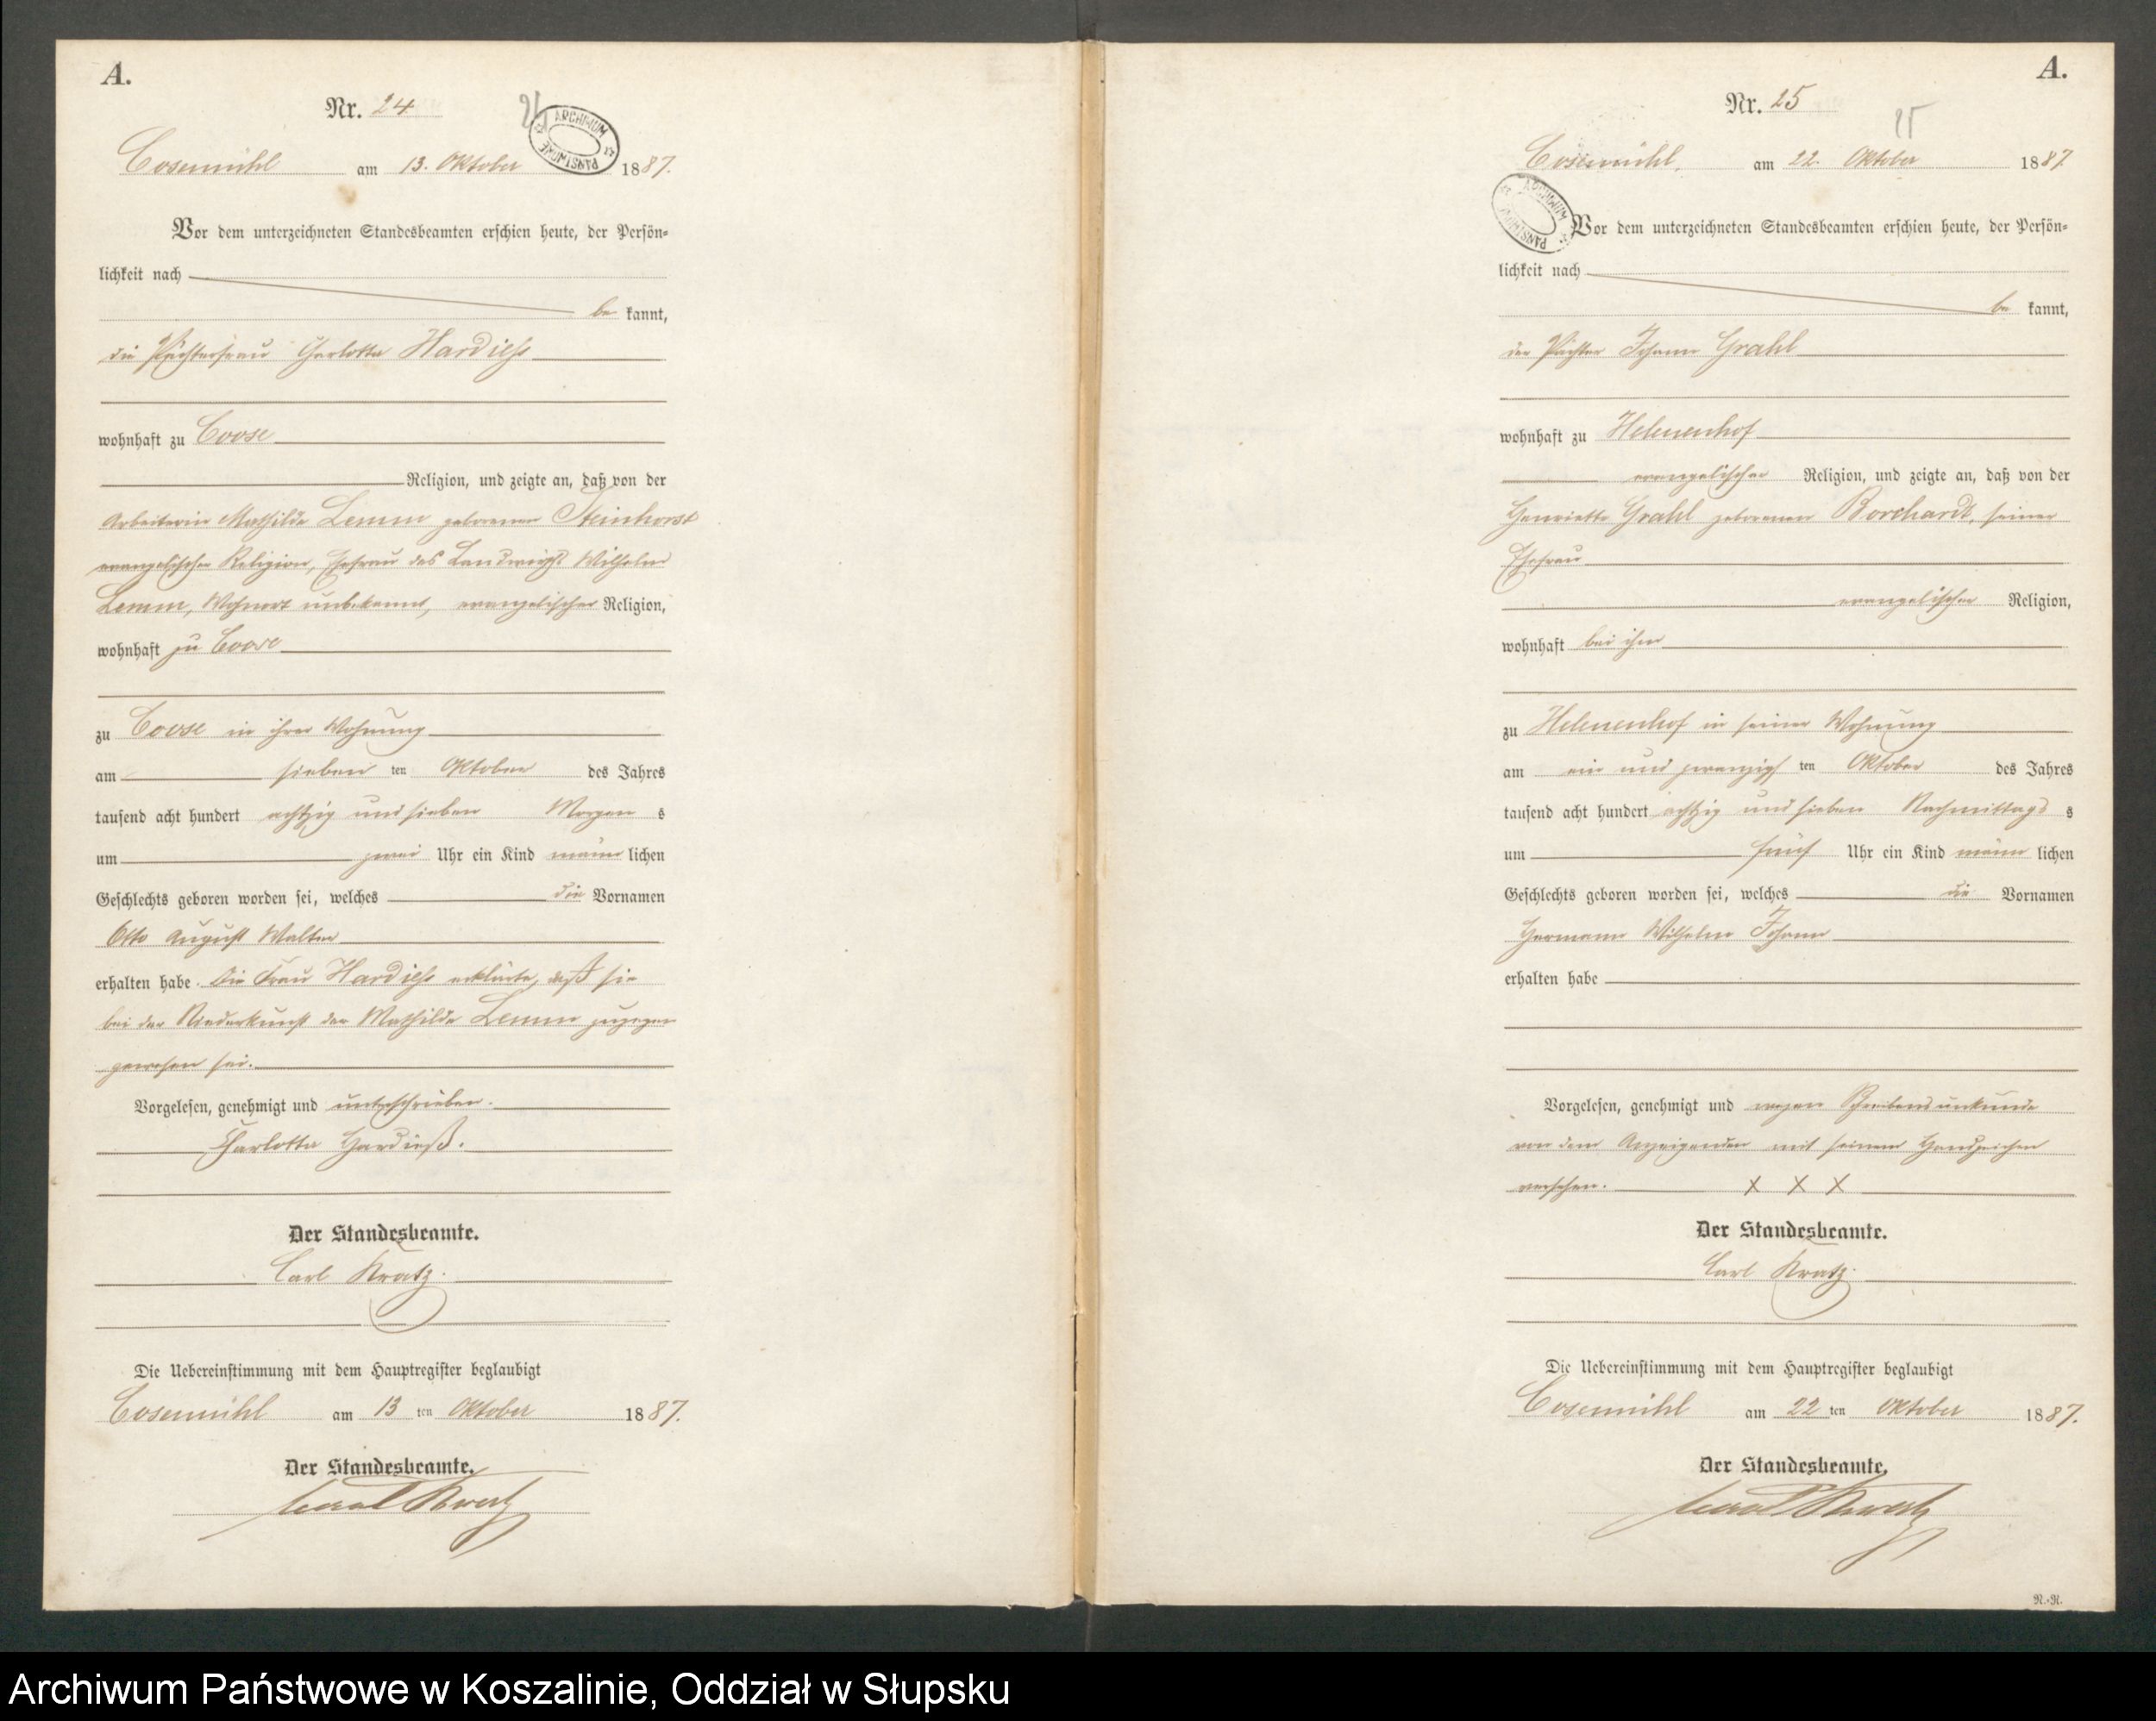 A.
Nr. 24
24
ARCHIWUM PAŃSTWOWE
Cosemühl am 13. Oktober 1887.
Vor dem unterzeichneten Standesbeamten erschien heute, der Persön-
lichkeit nach
be kannt,
die Pächterfrau Charlotte Hardieß
wohnhaft zu Coose
Religion, und zeigte an, daß von der
Arbeiterin Mathilde Lemm geborenen Steinhorst
evangelischer Religion, Ehefrau des Landwirths Wilhelm
Lemm, Wohnort unbekannt, evangelischer Religion,
wohnhaft zu Coose
zu Coose in ihrer Wohnung
am sieben ten Oktober des Jahres
tausend acht hundert achtzig und sieben Morgen s
um zwei Uhr ein Kind männ lichen
Geschlechts geboren worden sei, welches die Vornamen
Otto August Walter
erhalten habe. Die Frau Hardieß erklärte, daß sie
bei der Niederkunft der Mathilde Lemm zugegen
gewesen sei.
Vorgelesen, genehmigt und unterschrieben.
Charlotte Hardieß.
Der Standesbeamte.
Carl Kratz.
Die Uebereinstimmung mit dem Hauptregister beglaubigt
Cosemühl am 13 ten Oktober 1887.
Der Standesbeamte.
Carl Kratz
A.
Nr. 25
25
Cosemühl, am 22. Oktober 1887
ARCHIWUM PAŃSTWOWE
Vor dem unterzeichneten Standesbeamten erschien heute, der Persön-
lichkeit nach
be kannt,
der Pächter Johann Grahl
wohnhaft zu Helenenhof
evangelischer Religion, und zeigte an, daß von der
Henriette Grahl geborenen Borchardt, seiner
Ehefrau
evangelischer Religion,
wohnhaft bei ihm
zu Helenenhof in seiner Wohnung
am ein und zwanzigs ten Oktober des Jahres
tausend acht hundert achtzig und sieben Nachmittags s
um fünf Uhr ein Kind männ lichen
Geschlechts geboren worden sei, welches die Vornamen
Hermann Wilhelm Johann
erhalten habe
Vorgelesen, genehmigt und wegen Schreibensunkunde
von dem Anzeigenden mit seinem Handzeichen
versehen. X X X
Der Standesbeamte.
Carl Kratz.
Die Uebereinstimmung mit dem Hauptregister beglaubigt
Cosemühl am 22 ten Oktober 1887.
Der Standesbeamte.
Carl Kratz
N.-N.
Archiwum Państwowe w Koszalinie, Oddział w Słupsku